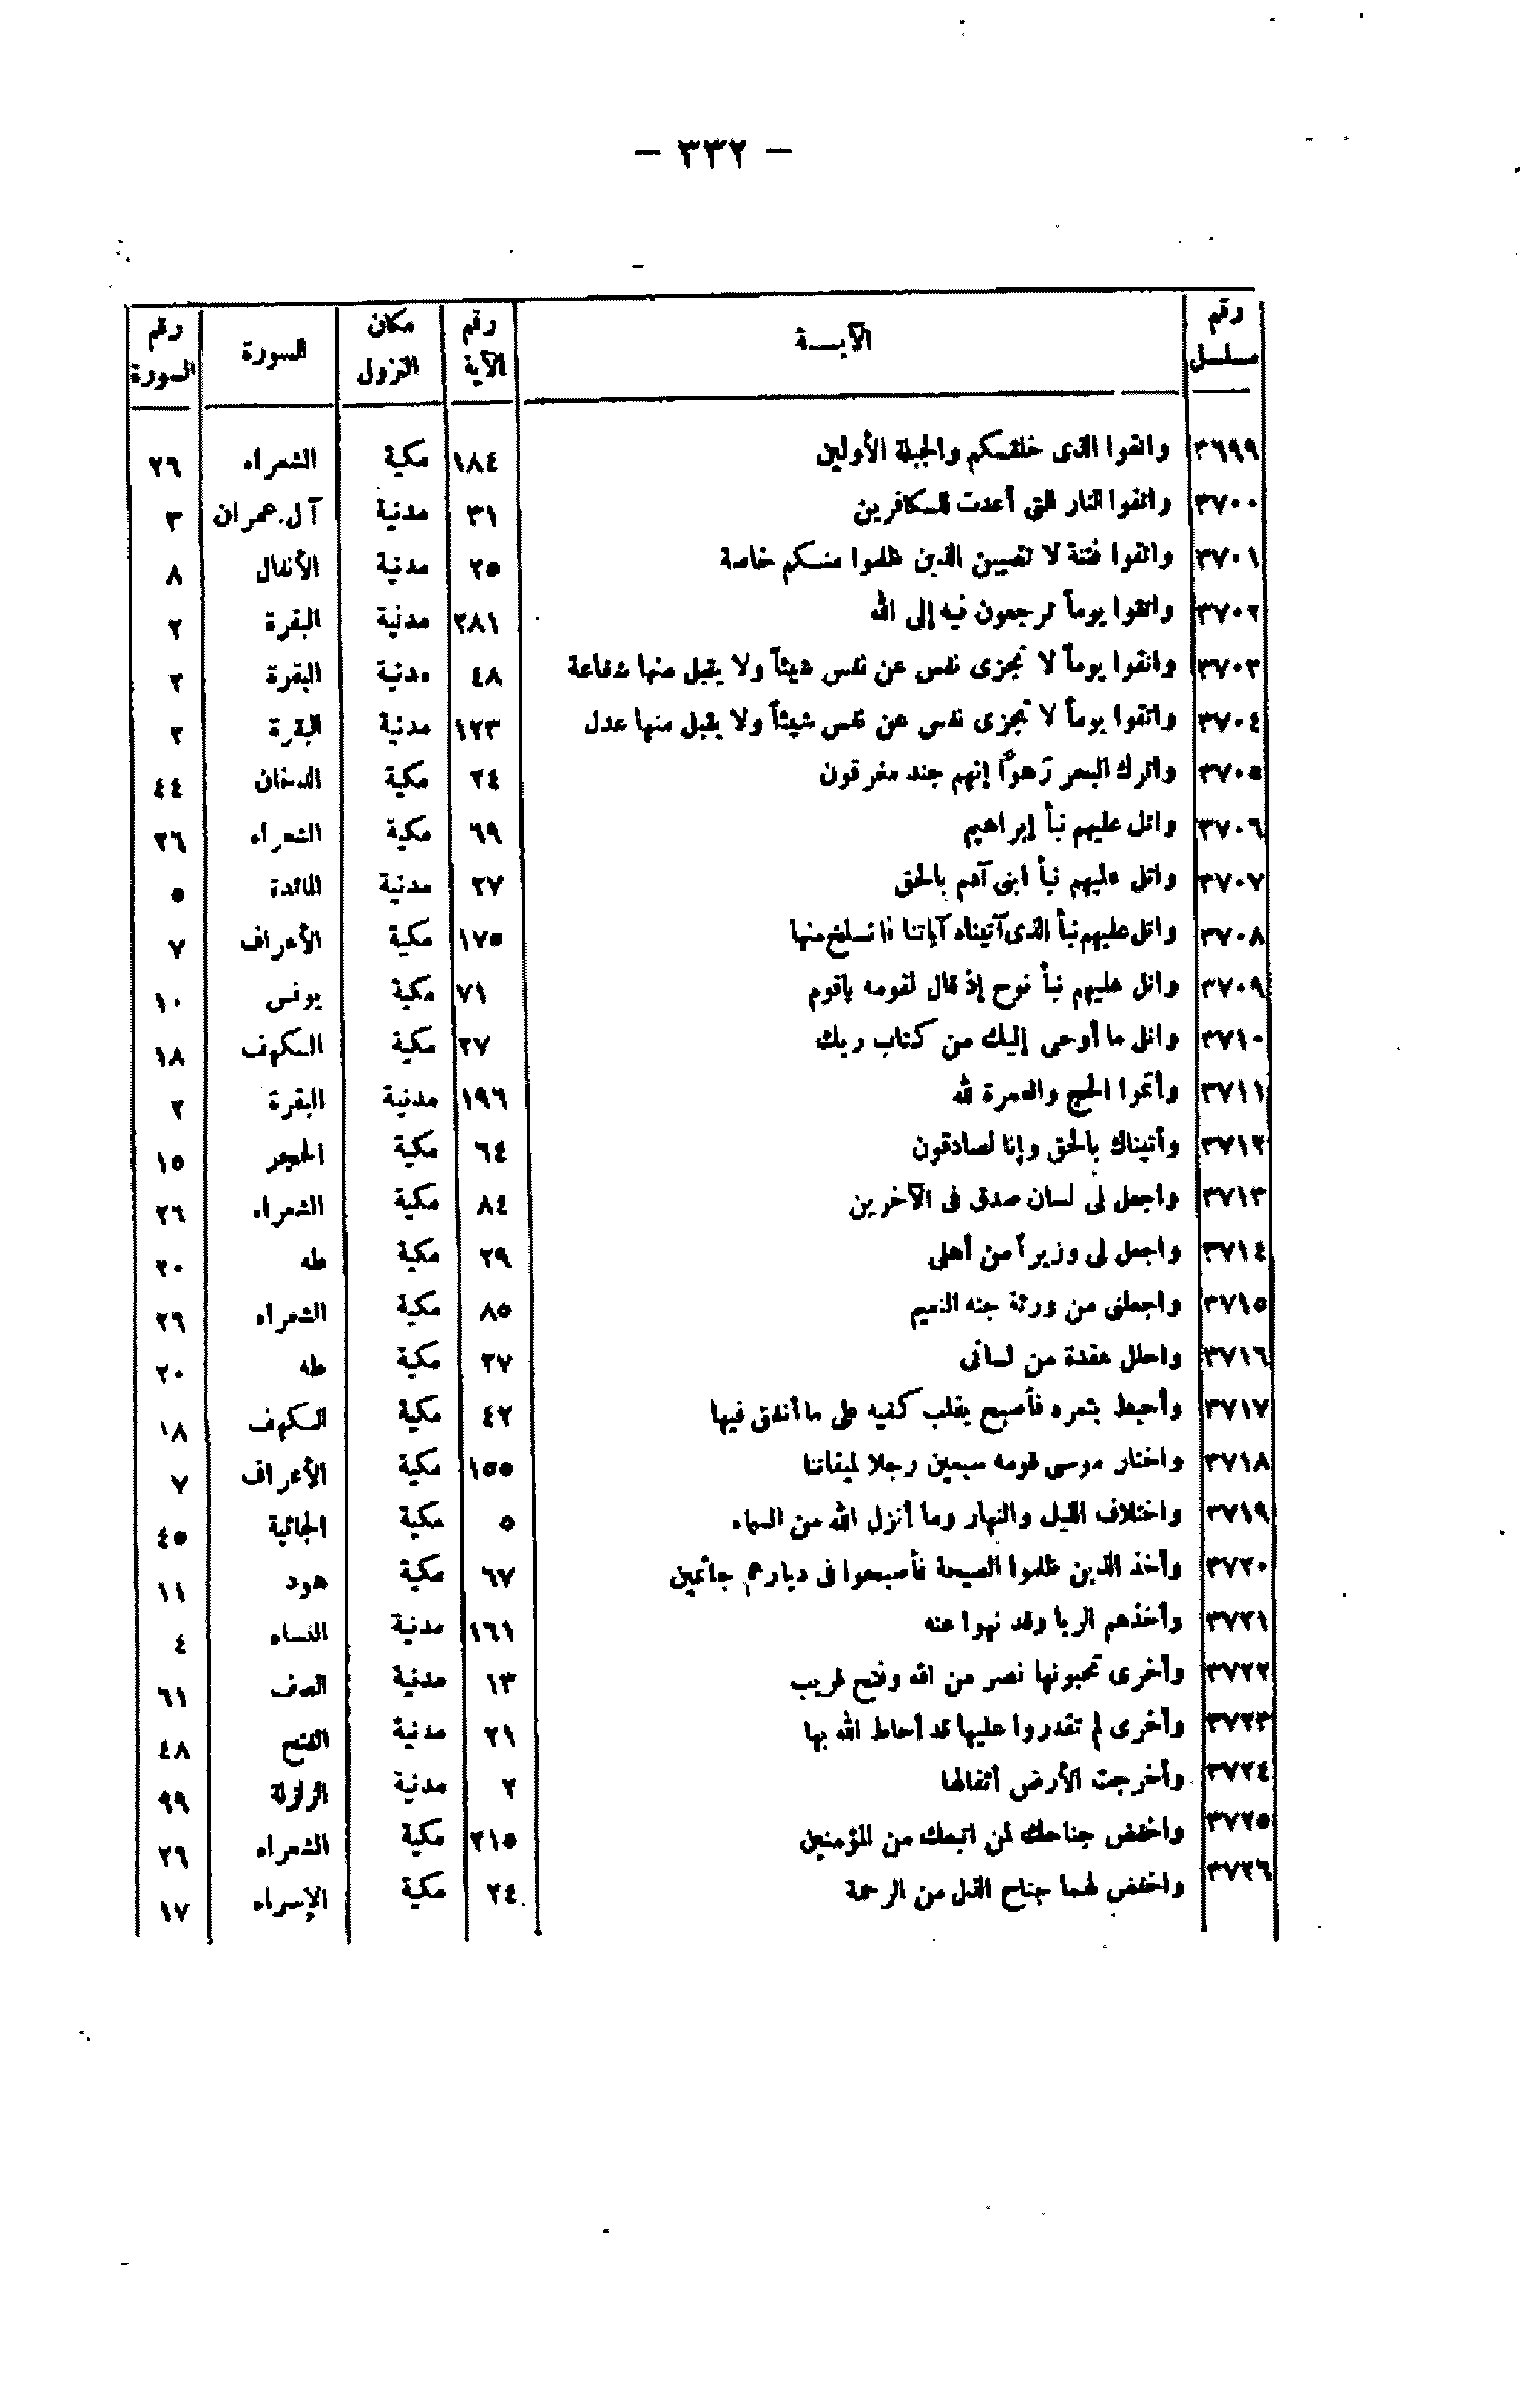 — ٣٣٢ —
رقم مسلسل | الآيـــة | رقم الآية | مكان النزول | السورة | رقم السورة
٣٦٩٩ | واتقوا الذى خلقكم والجبلة الأولين | ١٨٤ | مكية | الشعراء | ٢٦
٣٧٠٠ | واتقوا النار التى أعدت للكافرين | ٣١ | مدنية | آل عمران | ٣
٣٧٠١ | واتقوا فتنة لا تصيبن الذين ظلموا منكم خاصة | ٢٥ | مدنية | الأنفال | ٨
٣٧٠٢ | واتقوا يوماً ترجعون فيه إلى الله | ٢٨١ | مدنية | البقرة | ٢
٣٧٠٣ | واتقوا يوماً لا تجزى نفس عن نفس شيئاً ولا يقبل منها شفاعة | ٤٨ | مدنية | البقرة | ٢
٣٧٠٤ | واتقوا يوماً لا تجزى نفس عن نفس شيئاً ولا يقبل منها عدل | ١٢٣ | مدنية | البقرة | ٢
٣٧٠٥ | واترك البحر رَهواً إنهم جند مغرقون | ٢٤ | مكية | الدخان | ٤٤
٣٧٠٦ | واتل عليهم نبأ إبراهيم | ٦٩ | مكية | الشعراء | ٢٦
٣٧٠٧ | واتل عليهم نبأ ابنى آدم بالحق | ٢٧ | مدنية | المائدة | ٥
٣٧٠٨ | واتل عليهم نبأ الذى آتيناه آياتنا فانسلخ منها | ١٧٥ | مكية | الأعراف | ٧
٣٧٠٩ | واتل عليهم نبأ نوح إذ قال لقومه ياقوم | ٧١ | مكية | يونس | ١٠
٣٧١٠ | واتل ما أوحى إليك من كتاب ربك | ٢٧ | مكية | الكهف | ١٨
٣٧١١ | وأتموا الحج والعمرة لله | ١٩٦ | مدنية | البقرة | ٢
٣٧١٢ | وأتيناك بالحق وإنا لصادقون | ٦٤ | مكية | الحجر | ١٥
٣٧١٣ | واجعل لى لسان صدق فى الآخرين | ٨٤ | مكية | الشعراء | ٢٦
٣٧١٤ | واجعل لى وزيراً من أهلى | ٢٩ | مكية | طه | ٢٠
٣٧١٥ | واجعلنى من ورثة جنه النعيم | ٨٥ | مكية | الشعراء | ٢٦
٣٧١٦ | واحلل عقدة من لسانى | ٢٧ | مكية | طه | ٢٠
٣٧١٧ | وأحيط بثمره فأصبح يقلب كفيه على ما أنفق فيها | ٤٢ | مكية | الكهف | ١٨
٣٧١٨ | واختار موسى قومه سبعين رجلا لميقاتنا | ١٥٥ | مكية | الأعراف | ٧
٣٧١٩ | واختلاف الليل والنهار وما أنزل الله من السماء | ٥ | مكية | الجاثية | ٤٥
٣٧٢٠ | وأخذ الذين ظلموا الصيحة فأصبحوا فى ديارهم جاثمين | ٦٧ | مكية | هود | ١١
٣٧٢١ | وأخذهم الربا وقد نهوا عنه | ١٦١ | مدنية | النساء | ٤
٣٧٢٢ | وأخرى تحبونها نصر من الله وفتح قريب | ١٣ | مدنية | الصف | ٦١
٣٧٢٣ | وأخرى لم تقدروا عليها قد أحاط الله بها | ٢١ | مدنية | الفتح | ٤٨
٣٧٢٤ | وأخرجت الأرض أثقالها | ٢ | مدنية | الزلزلة | ٩٩
٣٧٢٥ | واخفض جناحك لمن اتبعك من المؤمنين | ٢١٥ | مكية | الشعراء | ٢٦
٣٧٢٦ | واخفض لهما جناح الذل من الرحمة | ٢٤ | مكية | الإسراء | ١٧